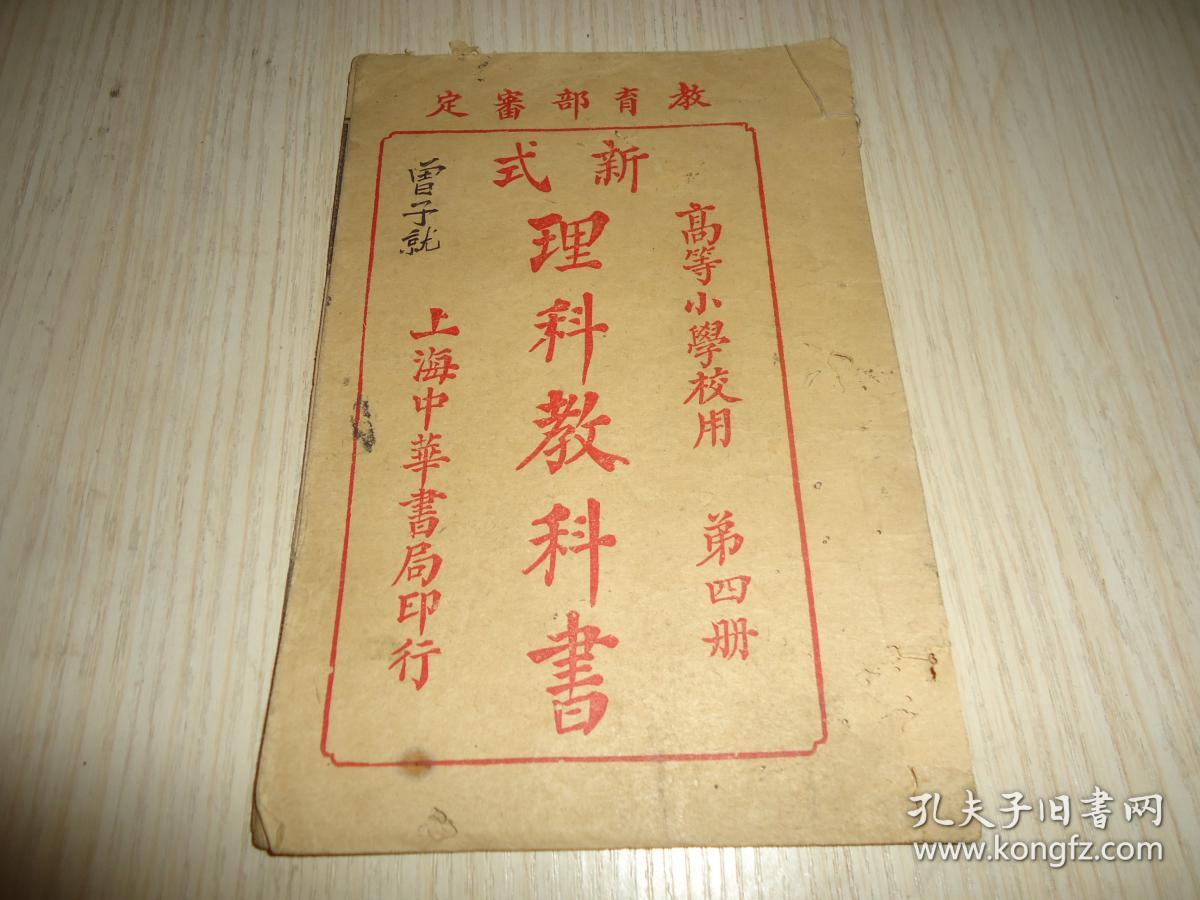 教育部審定
新式
理科教科書
高等小學校用 第四册
上海中華書局印行
曾子就
孔夫子旧書网
www.kongfz.com